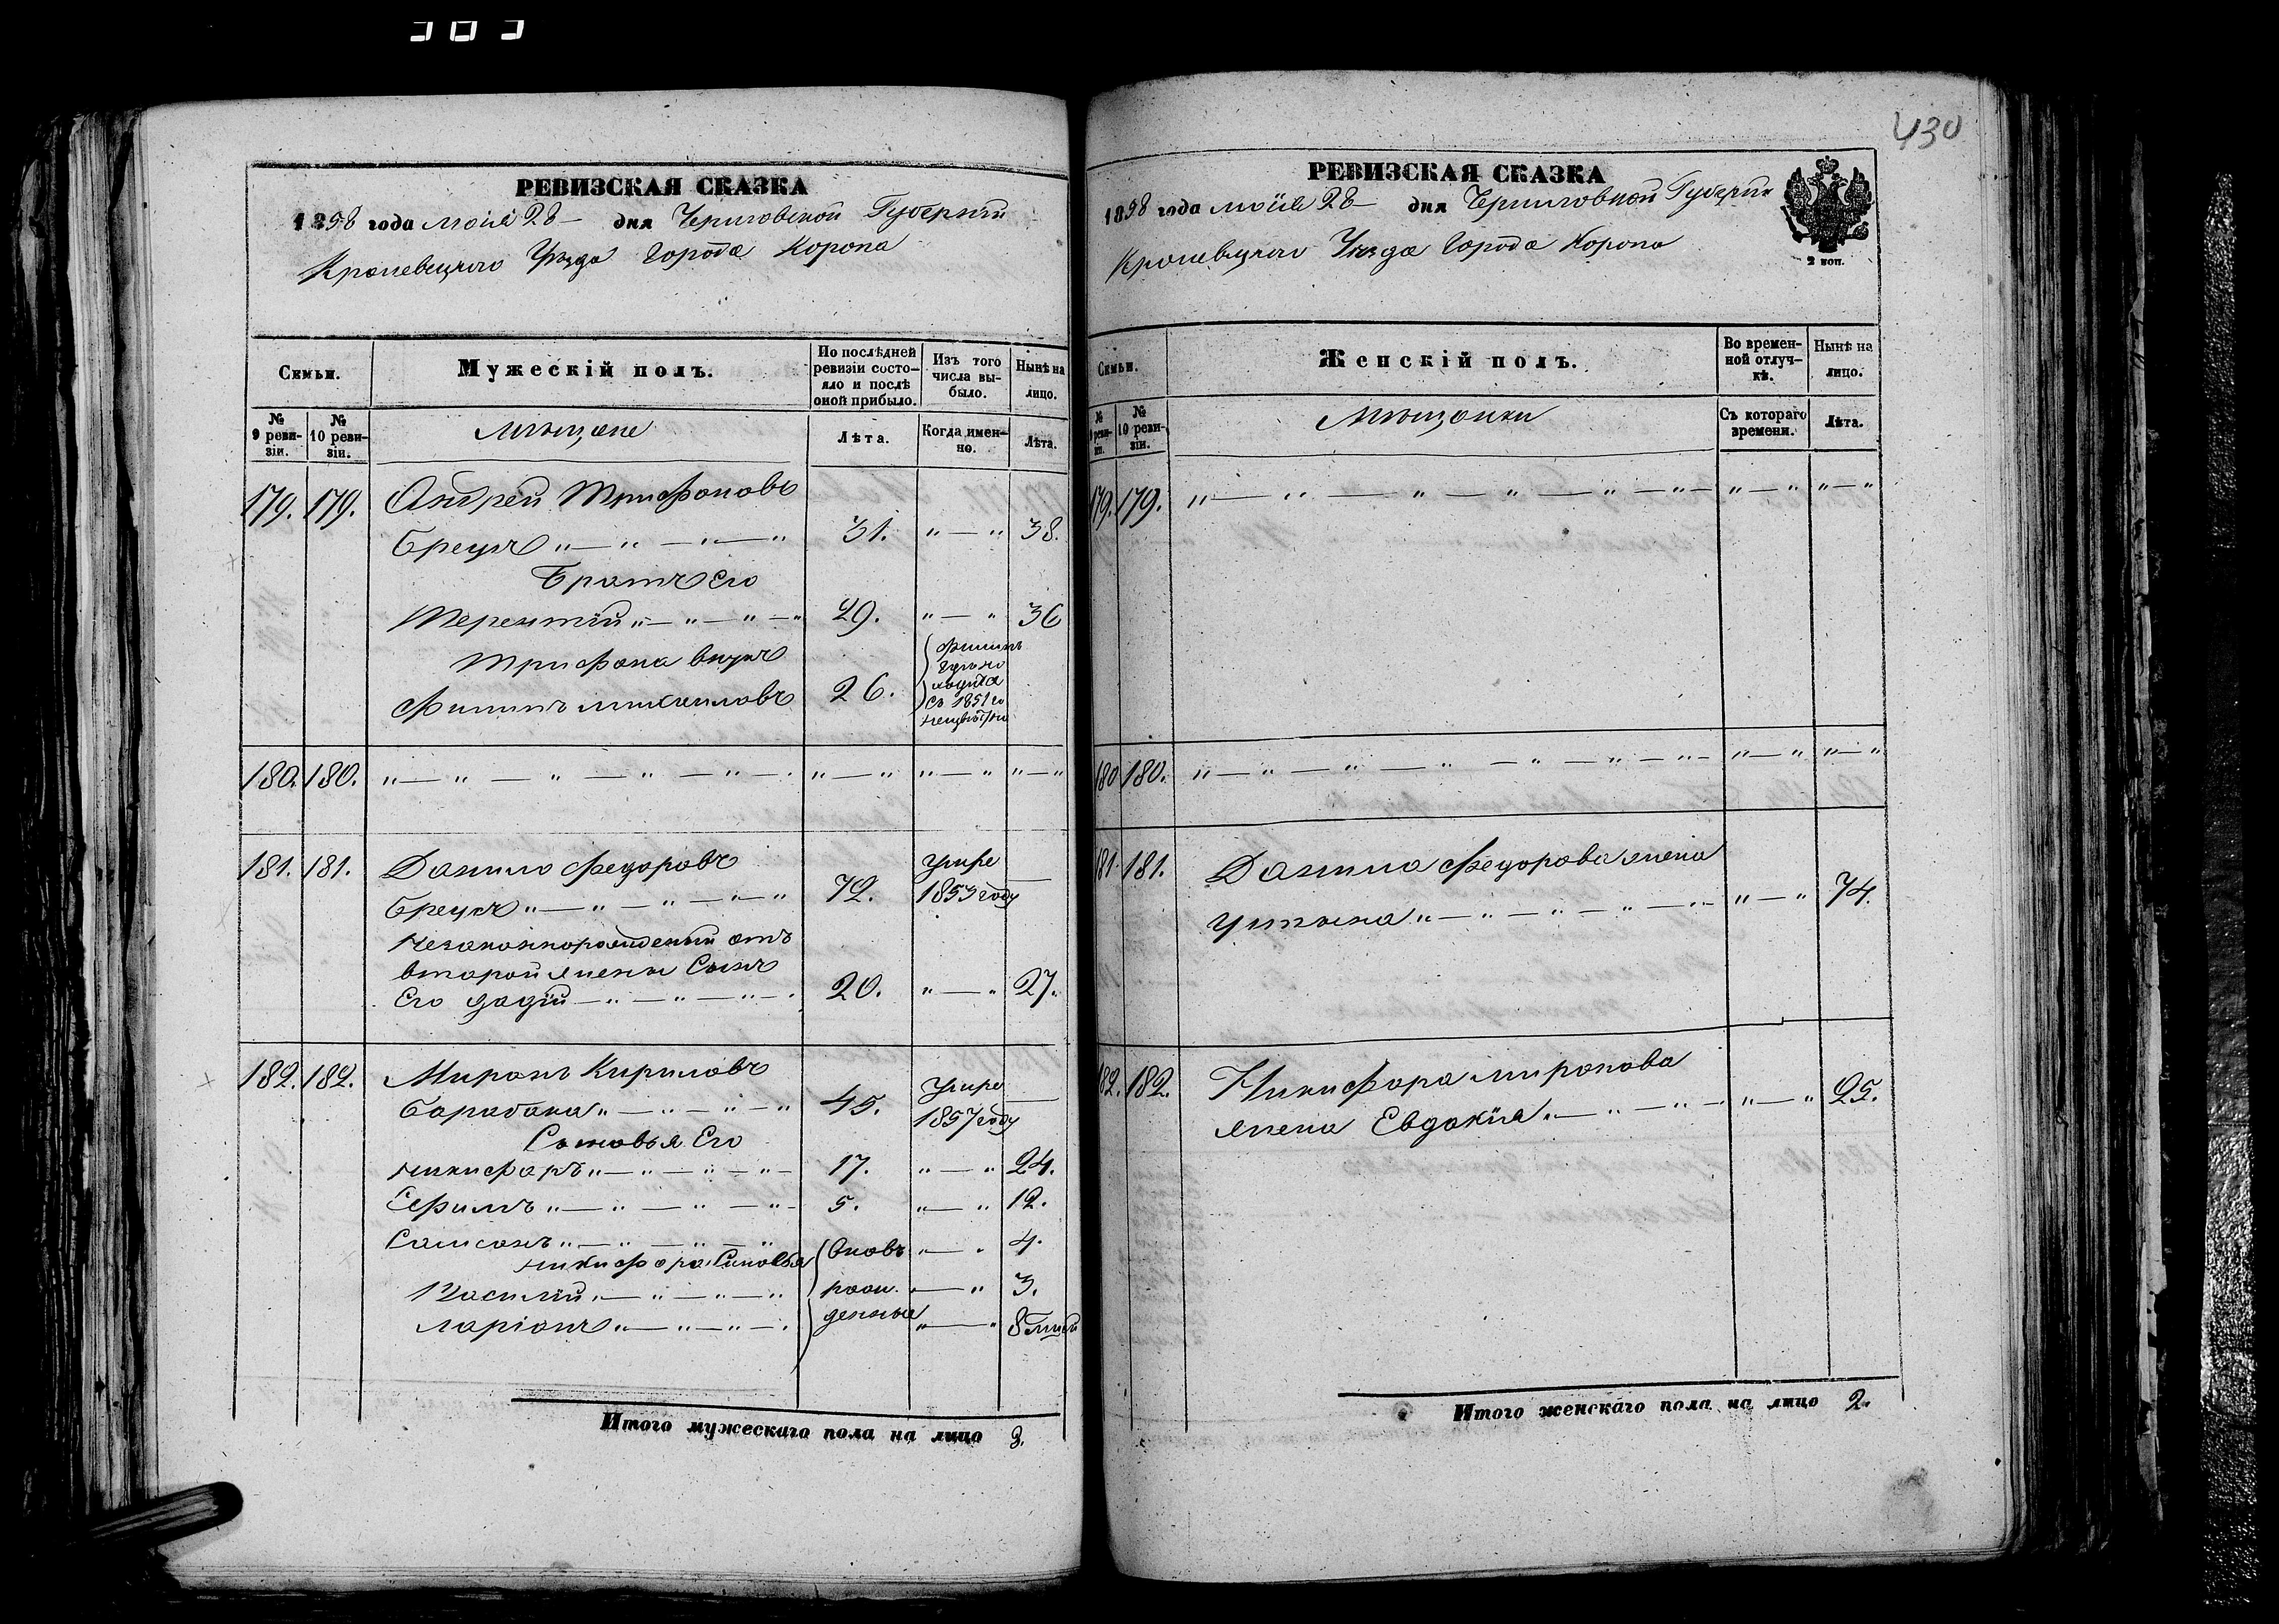 430
РЕВИЗСКАЯ СКАЗКА
1858 года маія 28 дня Черниговской Губерніи
Кролевецкаго Уѣзда Города Коропа
Семьи.
Мужескій полъ.
По послѣдней ревизіи состояло и послѣ оной прибыло.
Изъ того числа выбыло.
Нынѣ на лицо.
№ 9 ревизіи.
№ 10 ревизіи.
Мѣщане
Лѣта.
Когда именно.
Лѣта.
179. 179. Андрей Трифоновъ
Брецкъ „ — „ — „ — „ 31. „ — „ 38.
Братъ его
Терентій „ — „ — „ — „ 29. „ — „ 36
Трифона внукъ
Филипъ Михаиловъ 26.
съ 1851 го
180. 180. „ — „ — „ — „ — „ — „ — „ „ — „ „ — „
181. 181. Данило Федоровъ Умре
Брецкъ „ — „ — „ — „ — „ 72. 1853 году —
Незаконнорожденный отъ
второй жены Сынъ
Его — „ — „ — „ — „ 20. „ — „ 27.
182. 182. Миронъ Кириловъ Умре
Барабана „ — „ — „ — „ 45. 1857 году —
Сыновья Его
Никифоръ „ — „ — „ — „ — 17. „ — „ 24.
Ефимъ „ — „ — „ — „ — 5. „ — „ 12.
Самсонъ „ — „ — „ — „ вновь „ — „ 4.
Никифора Сыновья
Василій „ — „ — „ — „ рож- „ — „ 3.
Ларіонъ „ — „ — „ — „ денные „ — „ 8
Итого мужескаго пола на лицо 3.
РЕВИЗСКАЯ СКАЗКА
1858 года маія 28 дня Черниговской Губерніи
Кролевецкаго Уѣзда Города Коропа
2 коп.
Семьи.
Женскій полъ.
Во временной отлучкѣ.
Нынѣ на лицо.
№ 9 ревизіи.
№ 10 ревизіи.
Мѣщанки
Съ котораго времени.
Лѣта.
179. 179. „ — „ — „ — „ — „ — „ — „ — „ „ — „
180 180. „ — „ — „ — „ — „ — „ — „ — „ „ — „
181. 181. Данила Федорова жена
Ульяна „ — „ — „ — „ — „ „ — „ 74.
182. 182. Никифора Миронова
жена Евдокія „ — „ — „ — „ — „ 25.
Итого женскаго пола на лицо 2.